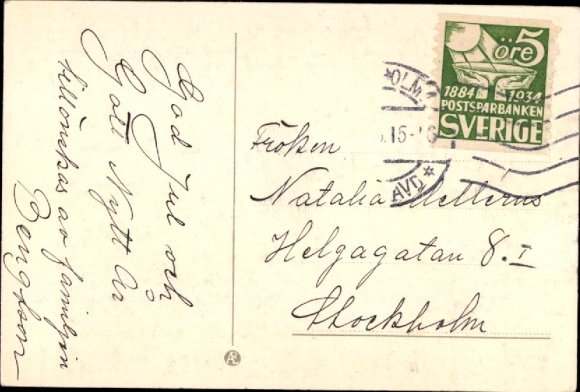 God Jul och
Gott Nytt År
tillönskas av familjen
Bengtson
5
öre
1884 1934
POSTSPARBANKEN
SVERIGE
OLM.
.15-
AVG *
Fröken
Natalia Mellerus
Helgagatan 8. I
Stockholm
Æ